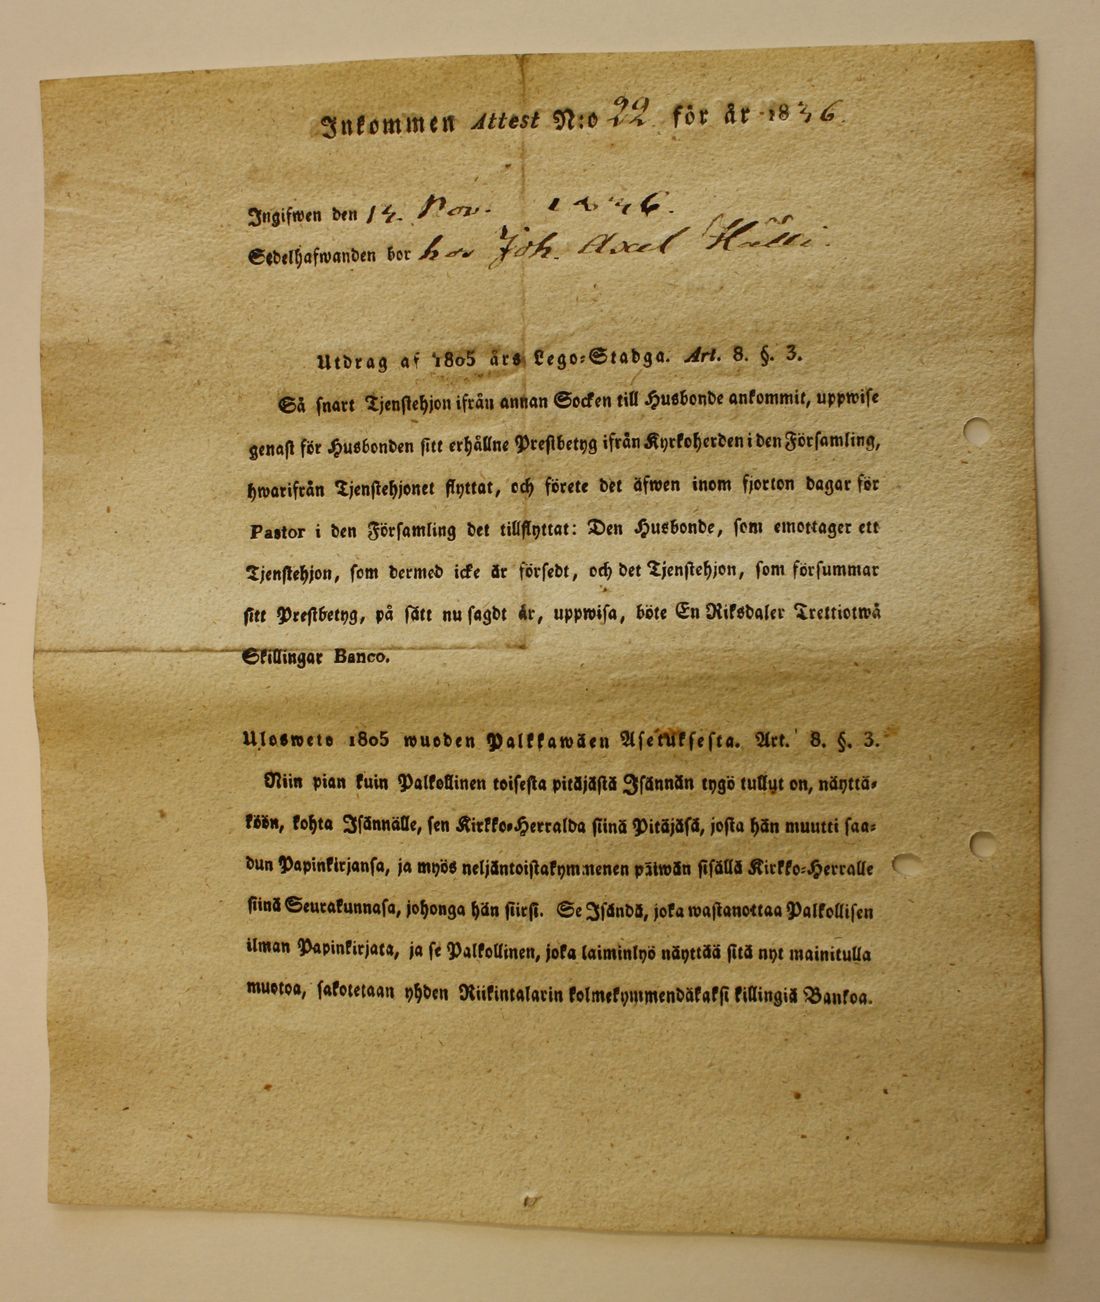 Inkommen Attest N:o 22 för år 1836.
Ingifwen den 14. Nov. 1836.
Sedelhafwanden bor hos Joh. Axel
Utdrag af 1805 års Lego=Stadga. Art. 8. §. 3.
Så snart Tjenstehjon ifrån annan Socken till Husbonde ankommit, uppwise
genast för Husbonden sitt erhållne Prestbetyg ifrån Kyrkoherden i den Församling,
hwarifrån Tjenstehjonet flyttat, och förete det äfwen inom fjorton dagar för
Pastor i den Församling det tillflyttat: Den Husbonde, som emottager ett
Tjenstehjon, som dermed icke är försedt, och det Tjenstehjon, som försummar
sitt Prestbetyg, på sätt nu sagdt är, uppwisa, böte En Riksdaler Trettiotwå
Skillingar Banco.
Ulosweto 1805 wuoden Palkkawäen Asetuksesta. Art. 8. §. 3.
Niin pian kuin Palkollinen toisesta pitäjästä Isännän tygö tullut on, näyttä=
köön, kohta Isännälle, sen Kirkko=Herralda siinä Pitäjäsä, josta hän muutti saa=
dun Papinkirjansa, ja myös neljäntoistakymmenen päiwän sisällä Kirkko=Herralle
siinä Seurakunnasa, johonga hän siirsi. Se Isändä, joka wastanottaa Palkollisen
ilman Papinkirjata, ja se Palkollinen, joka laiminlyö näyttää sitä nyt mainitulla
muotoa, sakotetaan yhden Riikintalarin kolmekymmendäkaksi killingiä Bankoa.